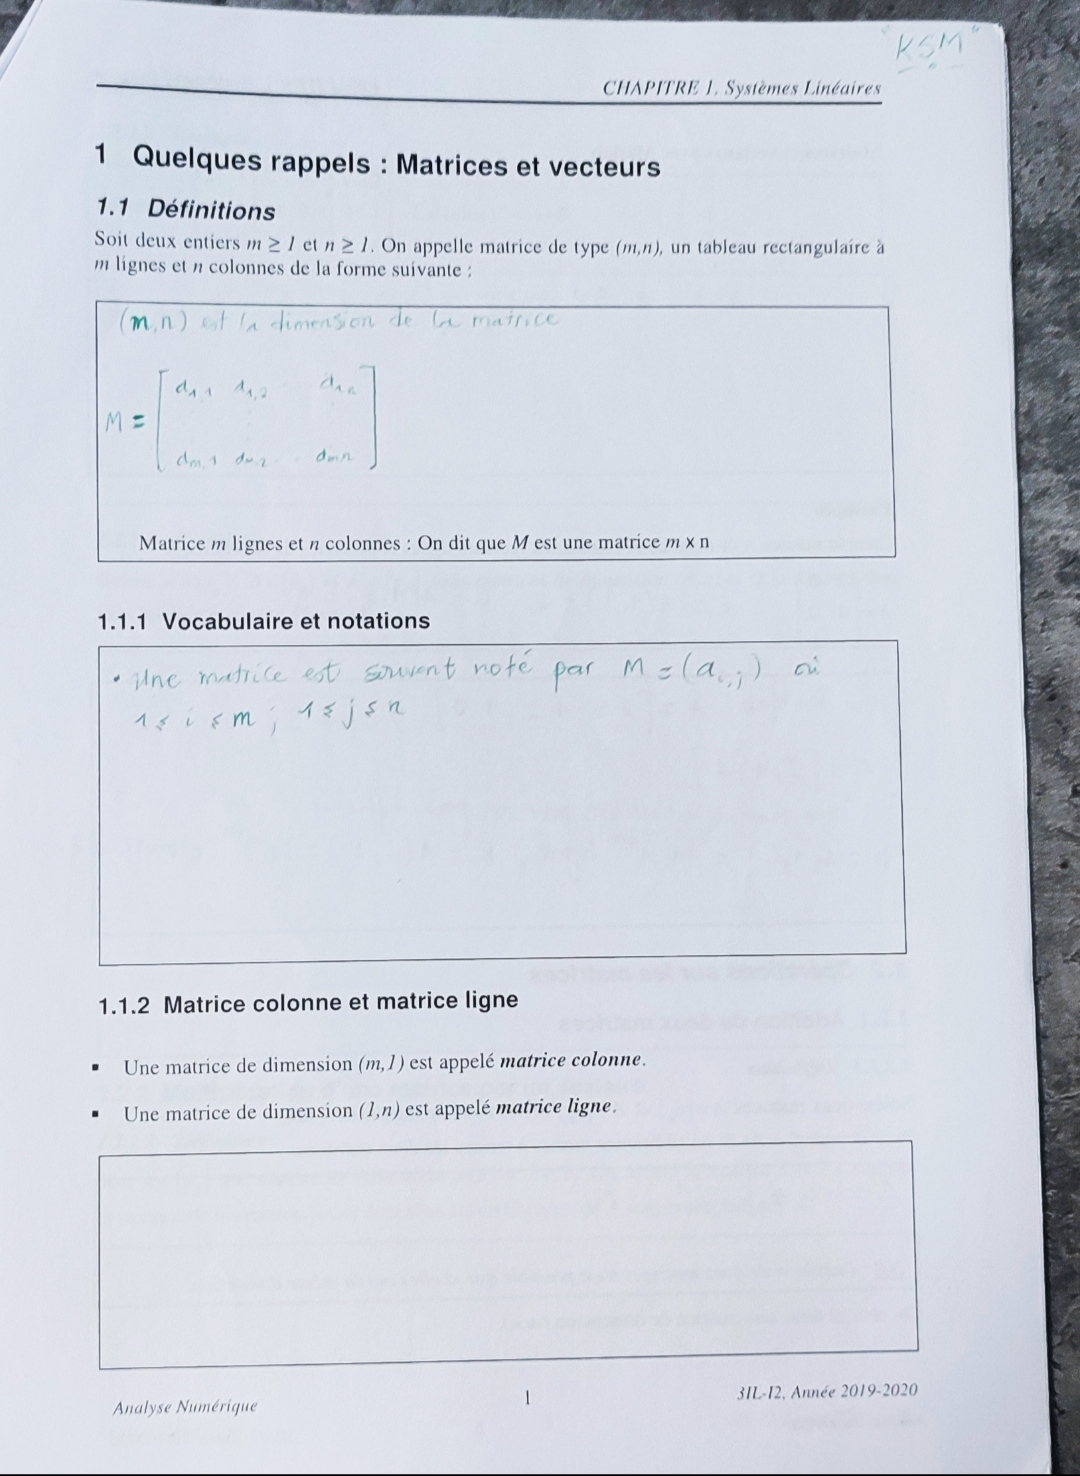 "KSM"
CHAPITRE 1. Systèmes Linéaires
1 Quelques rappels : Matrices et vecteurs
1.1 Définitions
Soit deux entiers m ≥ 1 et n ≥ 1. On appelle matrice de type (m,n), un tableau rectangulaire à
m lignes et n colonnes de la forme suivante :
(m,n) est la dimension de la matrice
a1,1 a1,2 ... a1n
M =
am,1 am,2 ... amn
Matrice m lignes et n colonnes : On dit que M est une matrice m x n
1.1.1 Vocabulaire et notations
• Une matrice est souvent noté par M = (ai,j) où
1 ≤ i ≤ m ; 1 ≤ j ≤ n
1.1.2 Matrice colonne et matrice ligne
▪ Une matrice de dimension (m,1) est appelé matrice colonne.
▪ Une matrice de dimension (1,n) est appelé matrice ligne.
Analyse Numérique
1
3IL-I2, Année 2019-2020